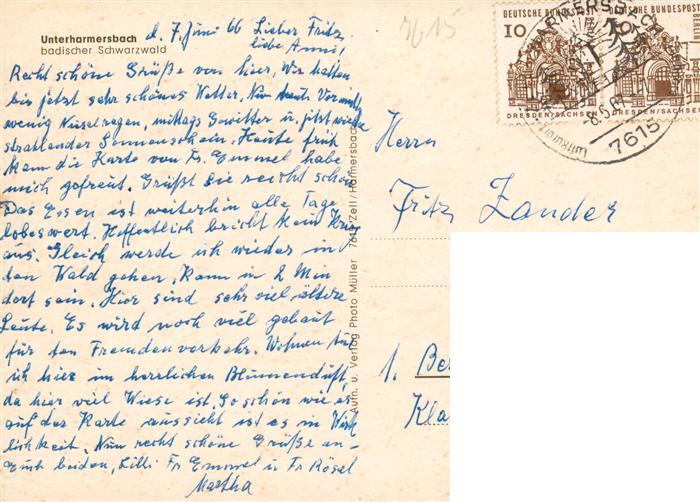 Unterharmersbach
badischer Schwarzwald
d. 7. Juni 66 Lieber Fritz,
liebe Anni,
Recht schöne Grüße von hier, Wir hatten
bis jetzt sehr schönes Wetter, Nur heute Vormittg
wenig Nieselregen, mittags Gewitter u. jetzt wieder
strahlender Sonnenschein, Heute früh
kam die Karte von Fr. Emmel habe
mich gefreut. Grüßt Sie recht schön
Das Essen ist weiterhin alle Tage
lobeswert. Hoffentlich bricht kein Krieg
aus. Gleich werde ich wieder in
den Wald gehen, Kann in 2 Min
dort sein. Hier sind sehr viel ältere
Leute. Es wird noch viel gebaut
für den Fremdenverkehr. Wohnen tue
ich hier im herrlichen Blumenduft,
da hier viel Wiese ist. So schön wie es
auf der Karte aussieht ist es in Wirk
lichkeit. Nun recht schöne Grüße an
Euch beiden, Lilli Fr Emmel u Fr Rösel
Martha
Aufn. u. Verlag Photo Müller 7615 Zell/Harmersbach
7615
DEUTSCHE BUNDESPOST
10
DRESDEN/SACHSEN
DEUTSCHE BUNDESPOST
BERLIN
10
DRESDEN/SACHSEN
Luftkurort
7615
Herrn
Fritz Zander
1. Be
Kla